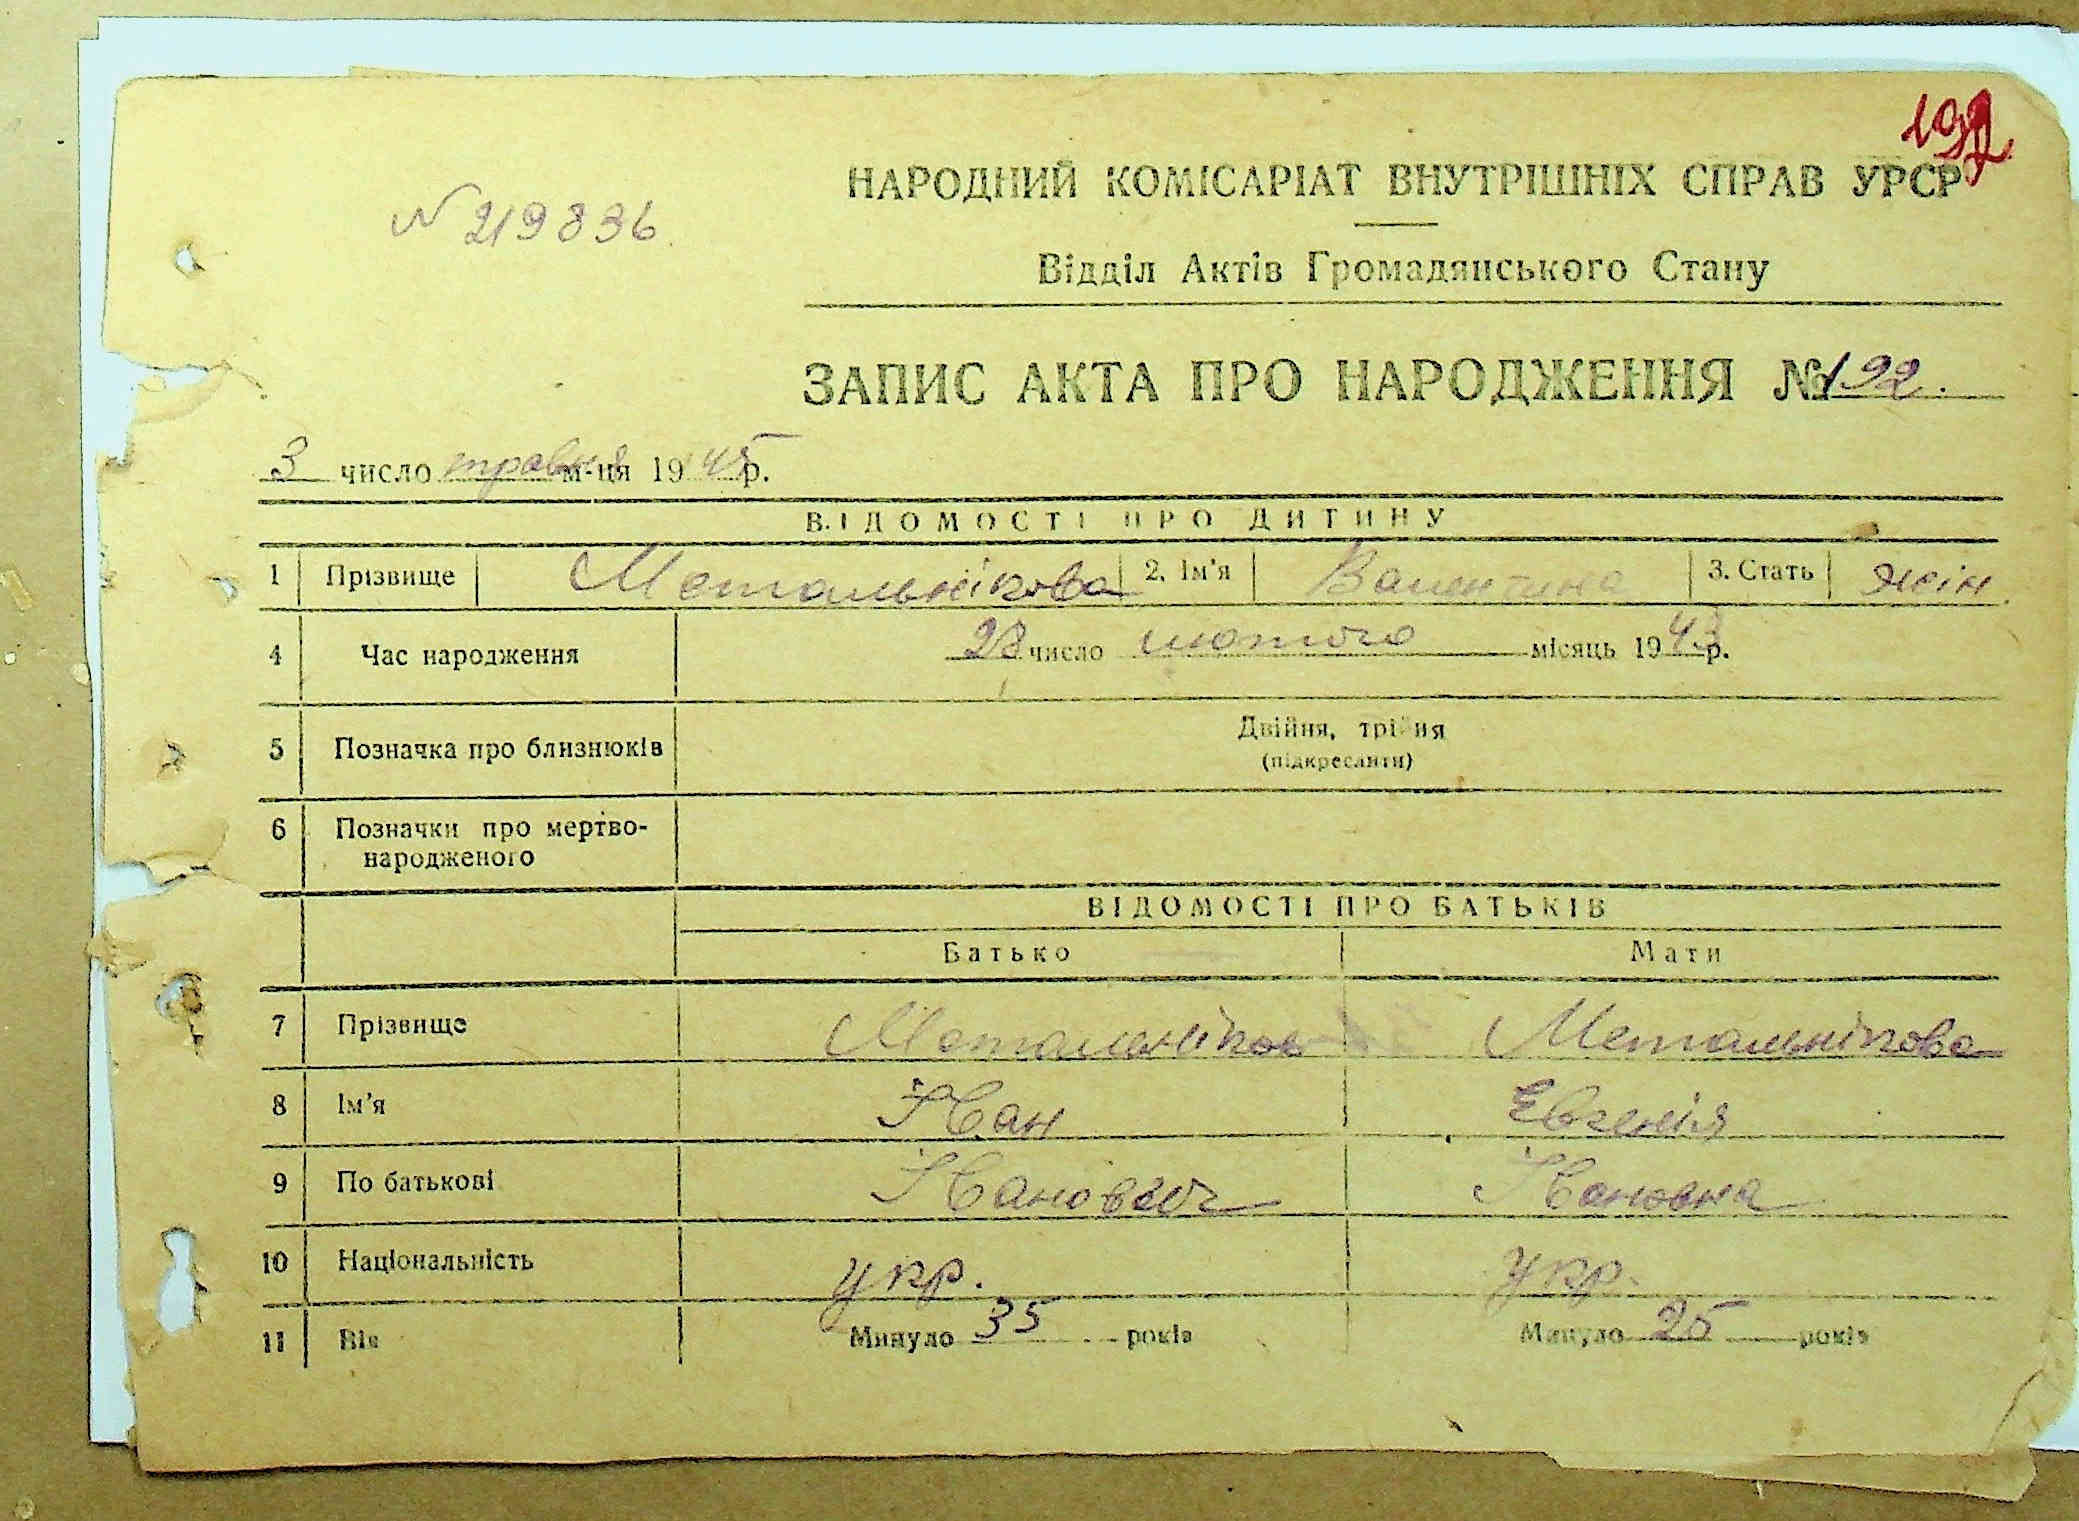 192
НАРОДНИЙ КОМІСАРІАТ ВНУТРІШНІХ СПРАВ УРСР
N 219836
Відділ Актів Громадянського Стану
ЗАПИС АКТА ПРО НАРОДЖЕННЯ № 192.
3 число травня м-ця 1945 р.
ВІДОМОСТІ ПРО ДИТИНУ
1 Прізвище Метальнікова 2. Ім'я Валентина 3. Стать жін.
4 Час народження 28 число лютого місяць 1943 р.
5 Позначка про близнюків Двійня, трійня
(підкреслити)
6 Позначки про мертво-
народженого
ВІДОМОСТІ ПРО БАТЬКІВ
Батько Мати
7 Прізвище Метальніков Метальнікова
8 Ім'я Іван Евгенія
9 По батькові Іванович Івановна
10 Національність укр. укр.
11 Вік Минуло 35 років Минуло 25 років